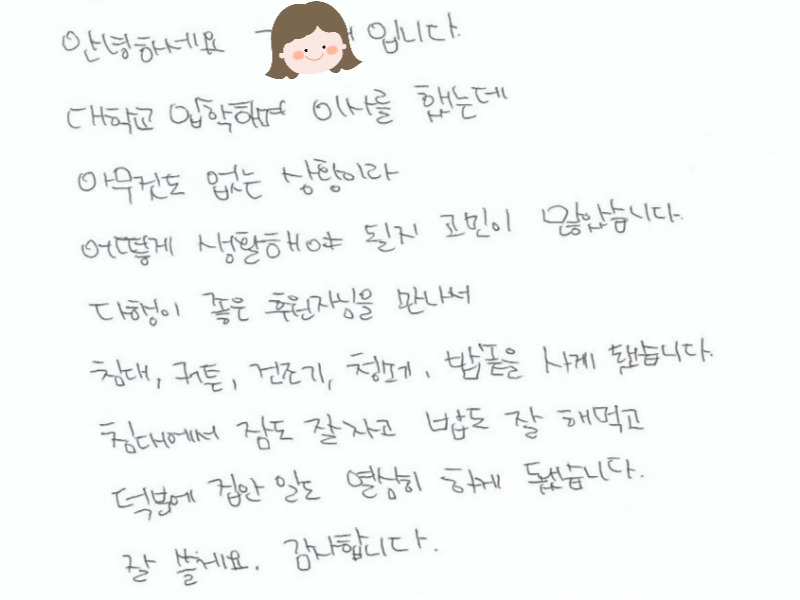 안녕하세요 입니다.
대학교 입학하며 이사를 했는데
아무것도 없는 상황이라
어떻게 생활해야 될지 고민이 많았습니다.
다행이 좋은 후원자님을 만나서
침대, 커튼, 건조기, 청소기, 밥솥을 사게 됐습니다.
침대에서 잠도 잘 자고 밥도 잘 해먹고
덕분에 집안 일도 열심히 하게 됐습니다.
잘 쓸게요. 감사합니다.